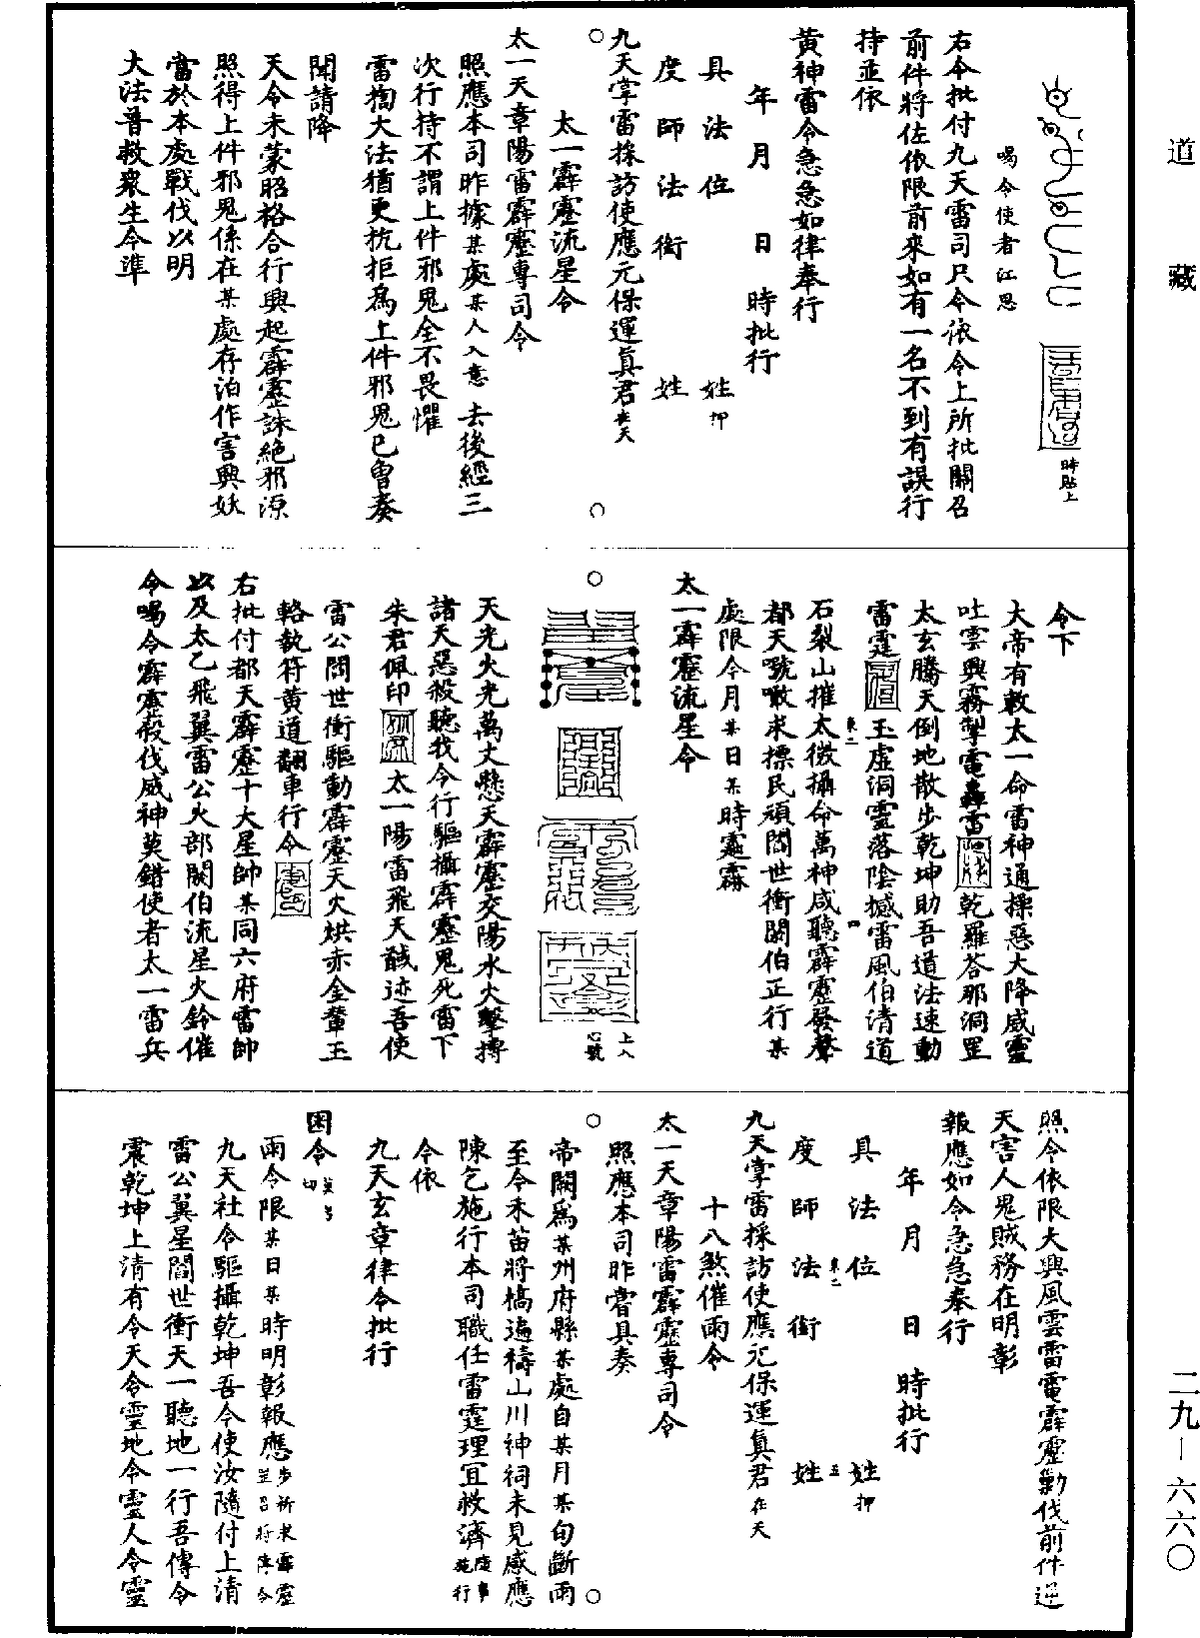 道藏
時貼上
喝令使者江恩
右令批付九天雷司只今依令上所批關召
前件將佐依限前來如有一名不到有誤行
持並依
黃神雷令急急如律奉行
年月日時批行
具法位姓押
度師法銜姓
九天掌雷採訪使應元保運眞君在天
太一霹靂流星令
太一天章陽雷霹靂專司令
照應本司昨據某處某人入意去後經三
次行持不謂上件邪鬼全不畏懼
雷搊大法猶更抗拒爲上件邪鬼已曾奏
聞請降
天令未蒙昭格合行興起霹靂誅絕邪源
照得上件邪鬼係在某處存泊作害興妖
當於本處戰伐以明
大法普救衆生令準
令下
大帝有敕太一命雷神通操惡大降威靈
吐雲興霧掣電轟雷乾羅荅那洞罡
太玄騰天倒地散步乾坤助吾道法速動
雷霆玉虛洞靈落陰撼雷風伯清道
石裂山摧太微攝命萬神咸聽霹靂發聲
都天號噉求摽民頑閻世衝閼伯正行某
處限今月某日某時霆霖
太一霹靂流星令
上入
心號
天光火光萬丈懸天霹靂交陽水火擊搏
諸天惡殺聽我令行驅攝霹靂鬼死雷下
朱君佩印太一陽雷飛天馘迹吾使
雷公閻世衝驅動霹靂天火烘赤金輦玉
輅執符黃道翻車行令
右批付都天霹靂十大星帥某同六府雷帥
以及太乙飛翼雷公火部閼伯流星火鈴催
令喝令霹靂殺伐威神莫錯使者太一雷兵
照令依限大興風雲雷電霹靂勦伐前件逆
天害人鬼賊務在明彰
報應如令急急奉行
年月日時批行
具法位姓押
度師法銜姓
九天掌雷採訪使應元保運眞君在天
十八煞催雨令
太一天章陽雷霹靂專司令
照應本司昨嘗具奏
帝闕爲某州府縣某處自某月某旬斷雨
至今禾苗將槁遍禱山川神祠未見感應
陳乞施行本司職任雷霆理宜救濟隨事施行
令依
九天玄章律令批行
困令
雨令限某日某時明彰報應步祈求霹靂並召將傳令
九天社令驅攝乾坤吾今使汝隨付上清
雷公翼星閻世衝天一聽地一行吾傳令
震乾坤上清有令天令靈地令靈人令靈
二九—六六〇